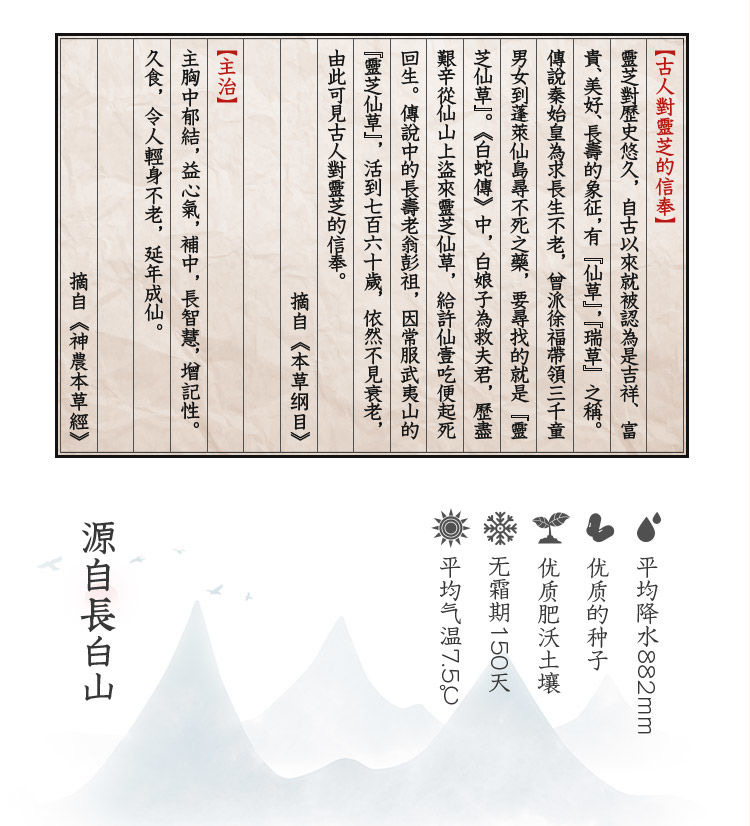 【古人對靈芝的信奉】
靈芝對歷史悠久，自古以來就被認為是吉祥、富
貴、美好、長壽的象征，有『仙草』，『瑞草』之稱。
傳說秦始皇為求長生不老，曾派徐福帶領三千童
男女到蓬萊仙島尋不死之藥，要尋找的就是『靈
芝仙草』。《白蛇傳》中，白娘子為救夫君，歷盡
艱辛從仙山上盜來靈芝仙草，給許仙壹吃便起死
回生。傳說中的長壽老翁彭祖，因常服武夷山的
『靈芝仙草』，活到七百六十歲，依然不見衰老，
由此可見古人對靈芝的信奉。
摘自《本草纲目》
【主治】
主胸中郁結，益心氣，補中，長智慧，增記性。
久食，令人輕身不老，延年成仙。
摘自《神農本草經》
平均降水882mm
优质的种子
优质肥沃土壤
无霜期150天
平均气温7.5℃
源自長白山